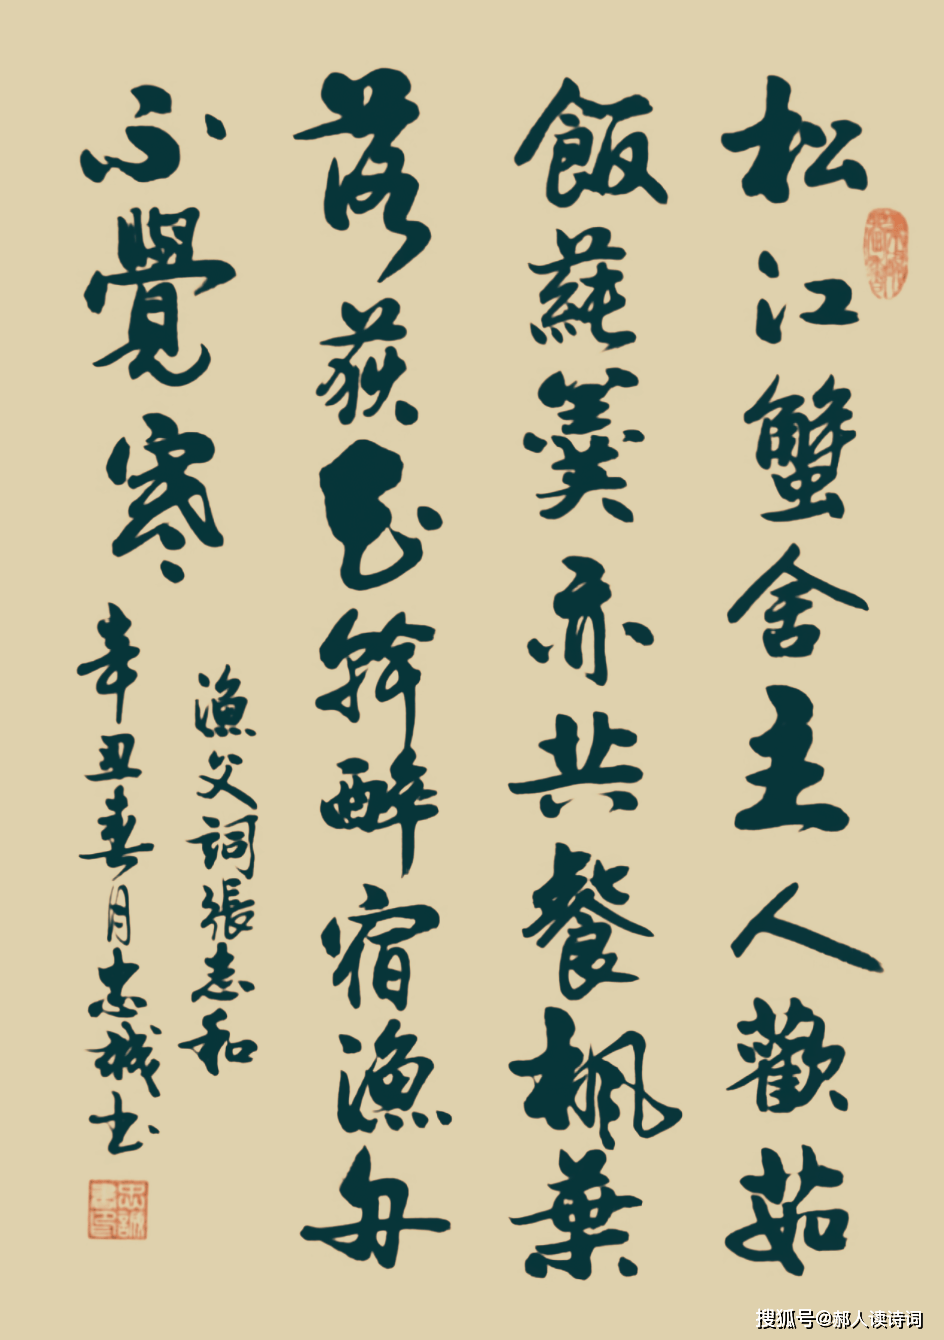 松江蟹舍主人歡茹
飯蓴羹亦共餐楓葉
落荻花乾醉宿漁舟
不覺寒
漁父詞張志和
辛丑春月忠城书
搜狐号@郝人读诗词